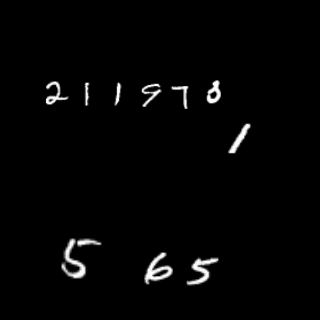 211978
1
5 65